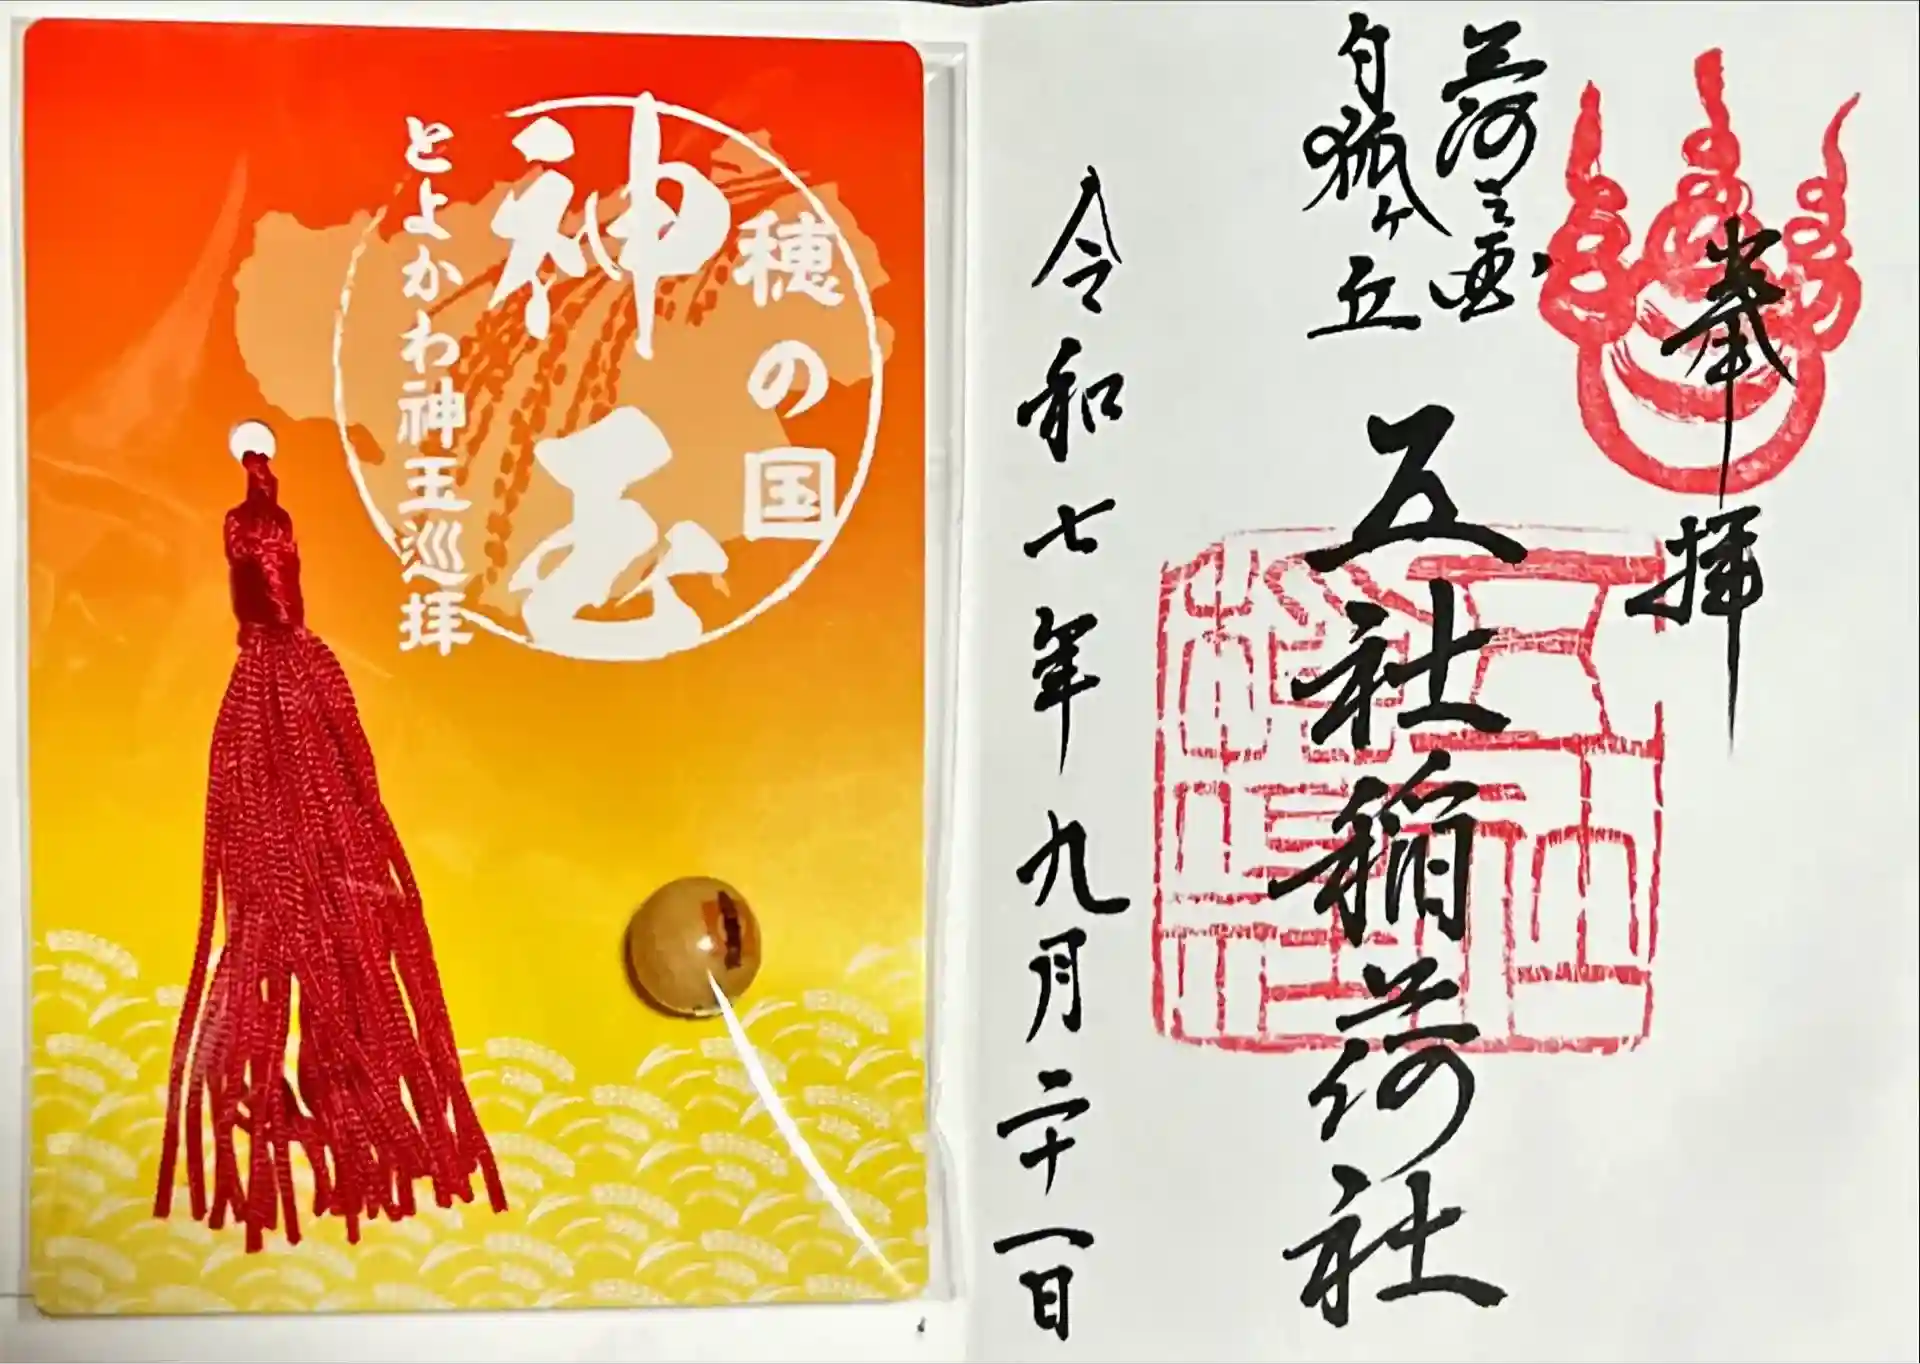 奉拝
三河之
白狐ヶ丘
五社稲荷社
令和七年九月二十一日
穂の国
神玉
とよかわ神玉巡拝